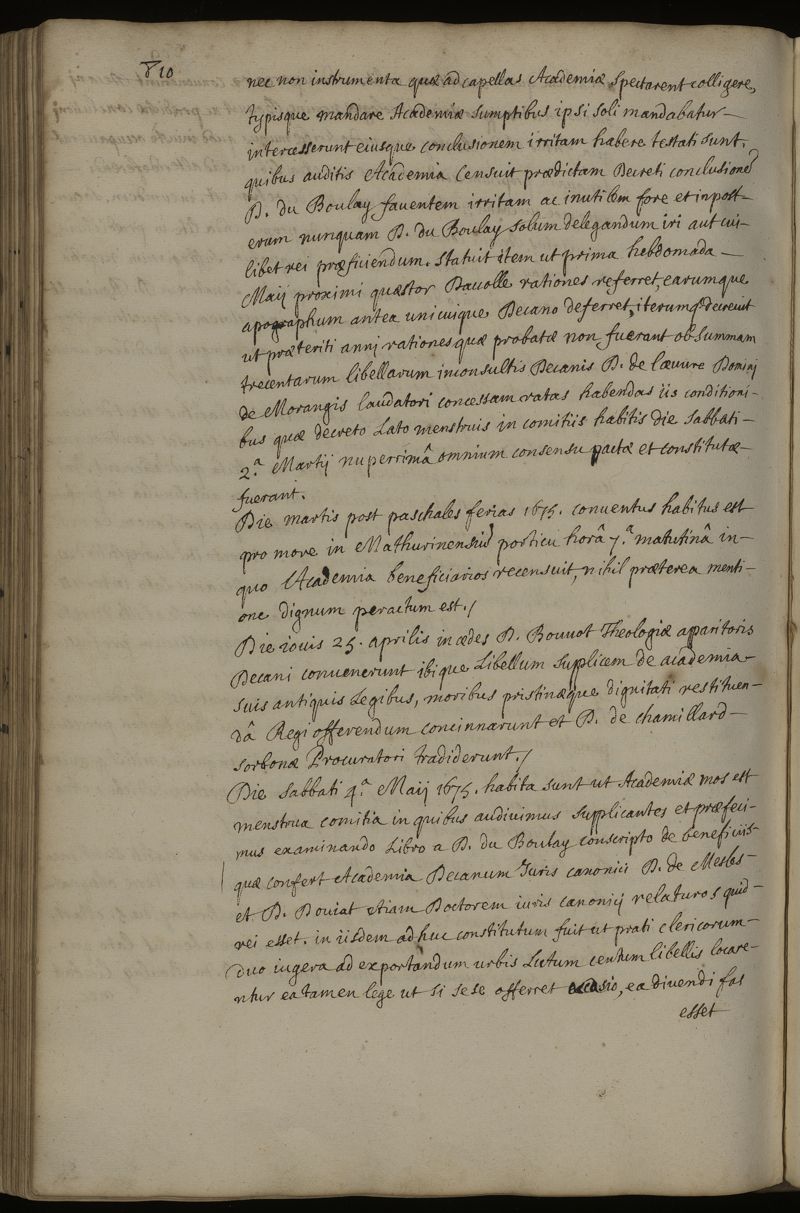 810
nec non instrumenta quæ ad capellas Academiæ spectarent colligere,
typisque mandare Academiæ sumptibus ipsi soli mandabatur –
intercesserunt eiusque conclusionem irritam habere testati sunt.
quibus auditis Academia Censuit prædictam Decreti conclusionem
D. du Boulay fauentem irritam ac inutilem fore et in post-
erum nunquam D. du Boulay solum delegandum iri aut cui-
libet rei præficiendum. Statuit item ut prima hebdomada –
Maij proximi quæstor Dauolle rationes referret, earumque
apographum antea unicuique Decano deferret, iterumq decreuit
ut præteriti annj rationes quæ probatæ non fuerant ob summam
trecentarum libellarum inconsultis Decanis D. de Lœuure Dominj
de Morangis laudatori concessam ratas habendas iis conditioni-
bus quæ decreto Lato menstruis in comitiis habitis die Sabbati –
2.ª Martij nuperrimâ omnium consensu pactæ et constitutæ –
fuerant.
Die martis post paschales ferias 1675. conuentus habitus est
pro more in Mathurinensiũ porticu horâ 7.ª matutinâ in –
quo Academia beneficiarios recensuit, nihil præterea menti-
one dignum peractum est./
Die iouis 25. aprilis in ædes D. Bouuot Theologiæ aparitoris
Decani conuenerunt ibique Libellum Suplicem de academia –
suis antiquis Legibus, moribus pristinæque dignitati restituen-
dâ Regi offerendum concinnarunt et D. de chamillard –
sorbonæ Procuratori tradiderunt./
Die Sabbati 4.ª Maij 1675. habita sunt ut Academiæ mos est
menstrua comitia in quibus audiuimus supplicantes et præfeci-
mus examinando Libro a D. du Boulay conscripto de beneficiis –
quæ confert Academia Decanum Juris canonici D. de Mesles –
et D. Douiat etiam Doctorem iuris canonicj relaturos quid –
rei esset. in iisdem ad huc constitutum fuit ut prati clericorum –
duo iugera ad exportandum urbis Lutum centum libellis locare-
ntur ea tamen lege ut si sese offerret occasio, ea diuendi fas
esset